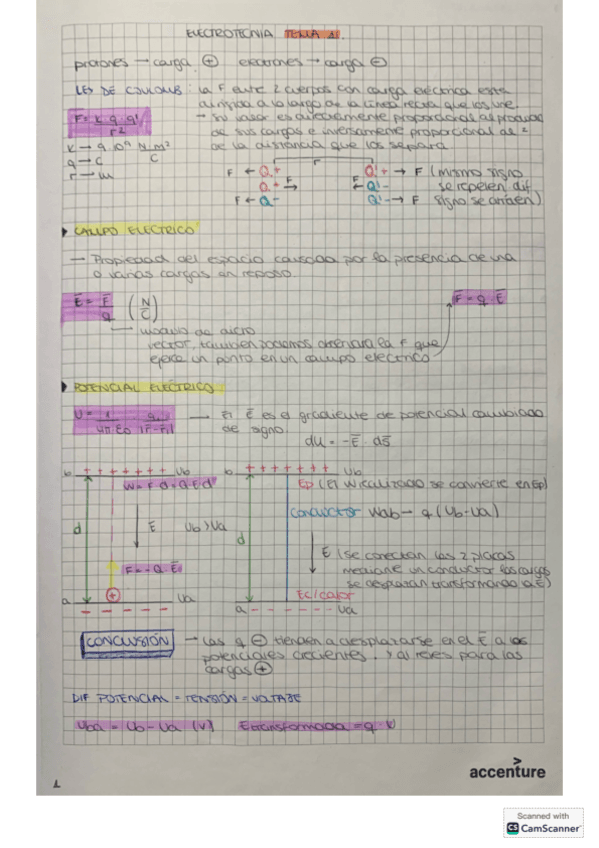 ELECTROTECNIA TEMA 1.
protones → carga ⊕ electrones → carga ⊖
LEY DE COULOMB : la F entre 2 cuerpos con carga eléctrica esta
dirigida a lo largo de la línea recta que los une.
F = K·q·q' / r²
→ Su valor es directamente proporcional al producto
de sus cargas e inversamente proporcional de r²
de la distancia que los separa
K → 9·10⁹ N·m² / C
q → C
r → m
r
F ← Q+ Q'+ → F (mismo signo
Q+ → F F ← Q'- se repelen dif
F ← Q- Q'- → F signo se atraen)
CAMPO ELECTRICO
— Propiedad del espacio causada por la presencia de una
o varias cargas en reposo.
E = F / q (N/C)
F = q·E
— modulo de dicho
vector, tambien podemos obtener la F que
ejerce un punto en un campo electrico
POTENCIAL ELÉCTRICO
— El E es el gradiente de potencial cambiado
de signo.
du = -E·ds
b + + + + + + + Ub
b + + + + + + + Ub
W = F·d = Q·E·d
Ep (El W realizado se convierte en Ep)
conductor Wab → q (Ub-Ua)
d
E
Ub > Ua
d
E (se conectan las 2 placas
mediante un conductor las cargas
se desplazan transformando
F = -Q·E
Ec/calor
a - - - - - - Ua
a - - - - - - Ua
CONCLUSIÓN
→ Las q ⊖ tienden a desplazarse en el E a los
potenciales crecientes. Y al reves para las
cargas ⊕
DIF POTENCIAL = TENSIÓN = VOLTAJE
Uba = Ub - Ua (V) Etransformada = q·U
1
accenture
Scanned with
CS CamScanner